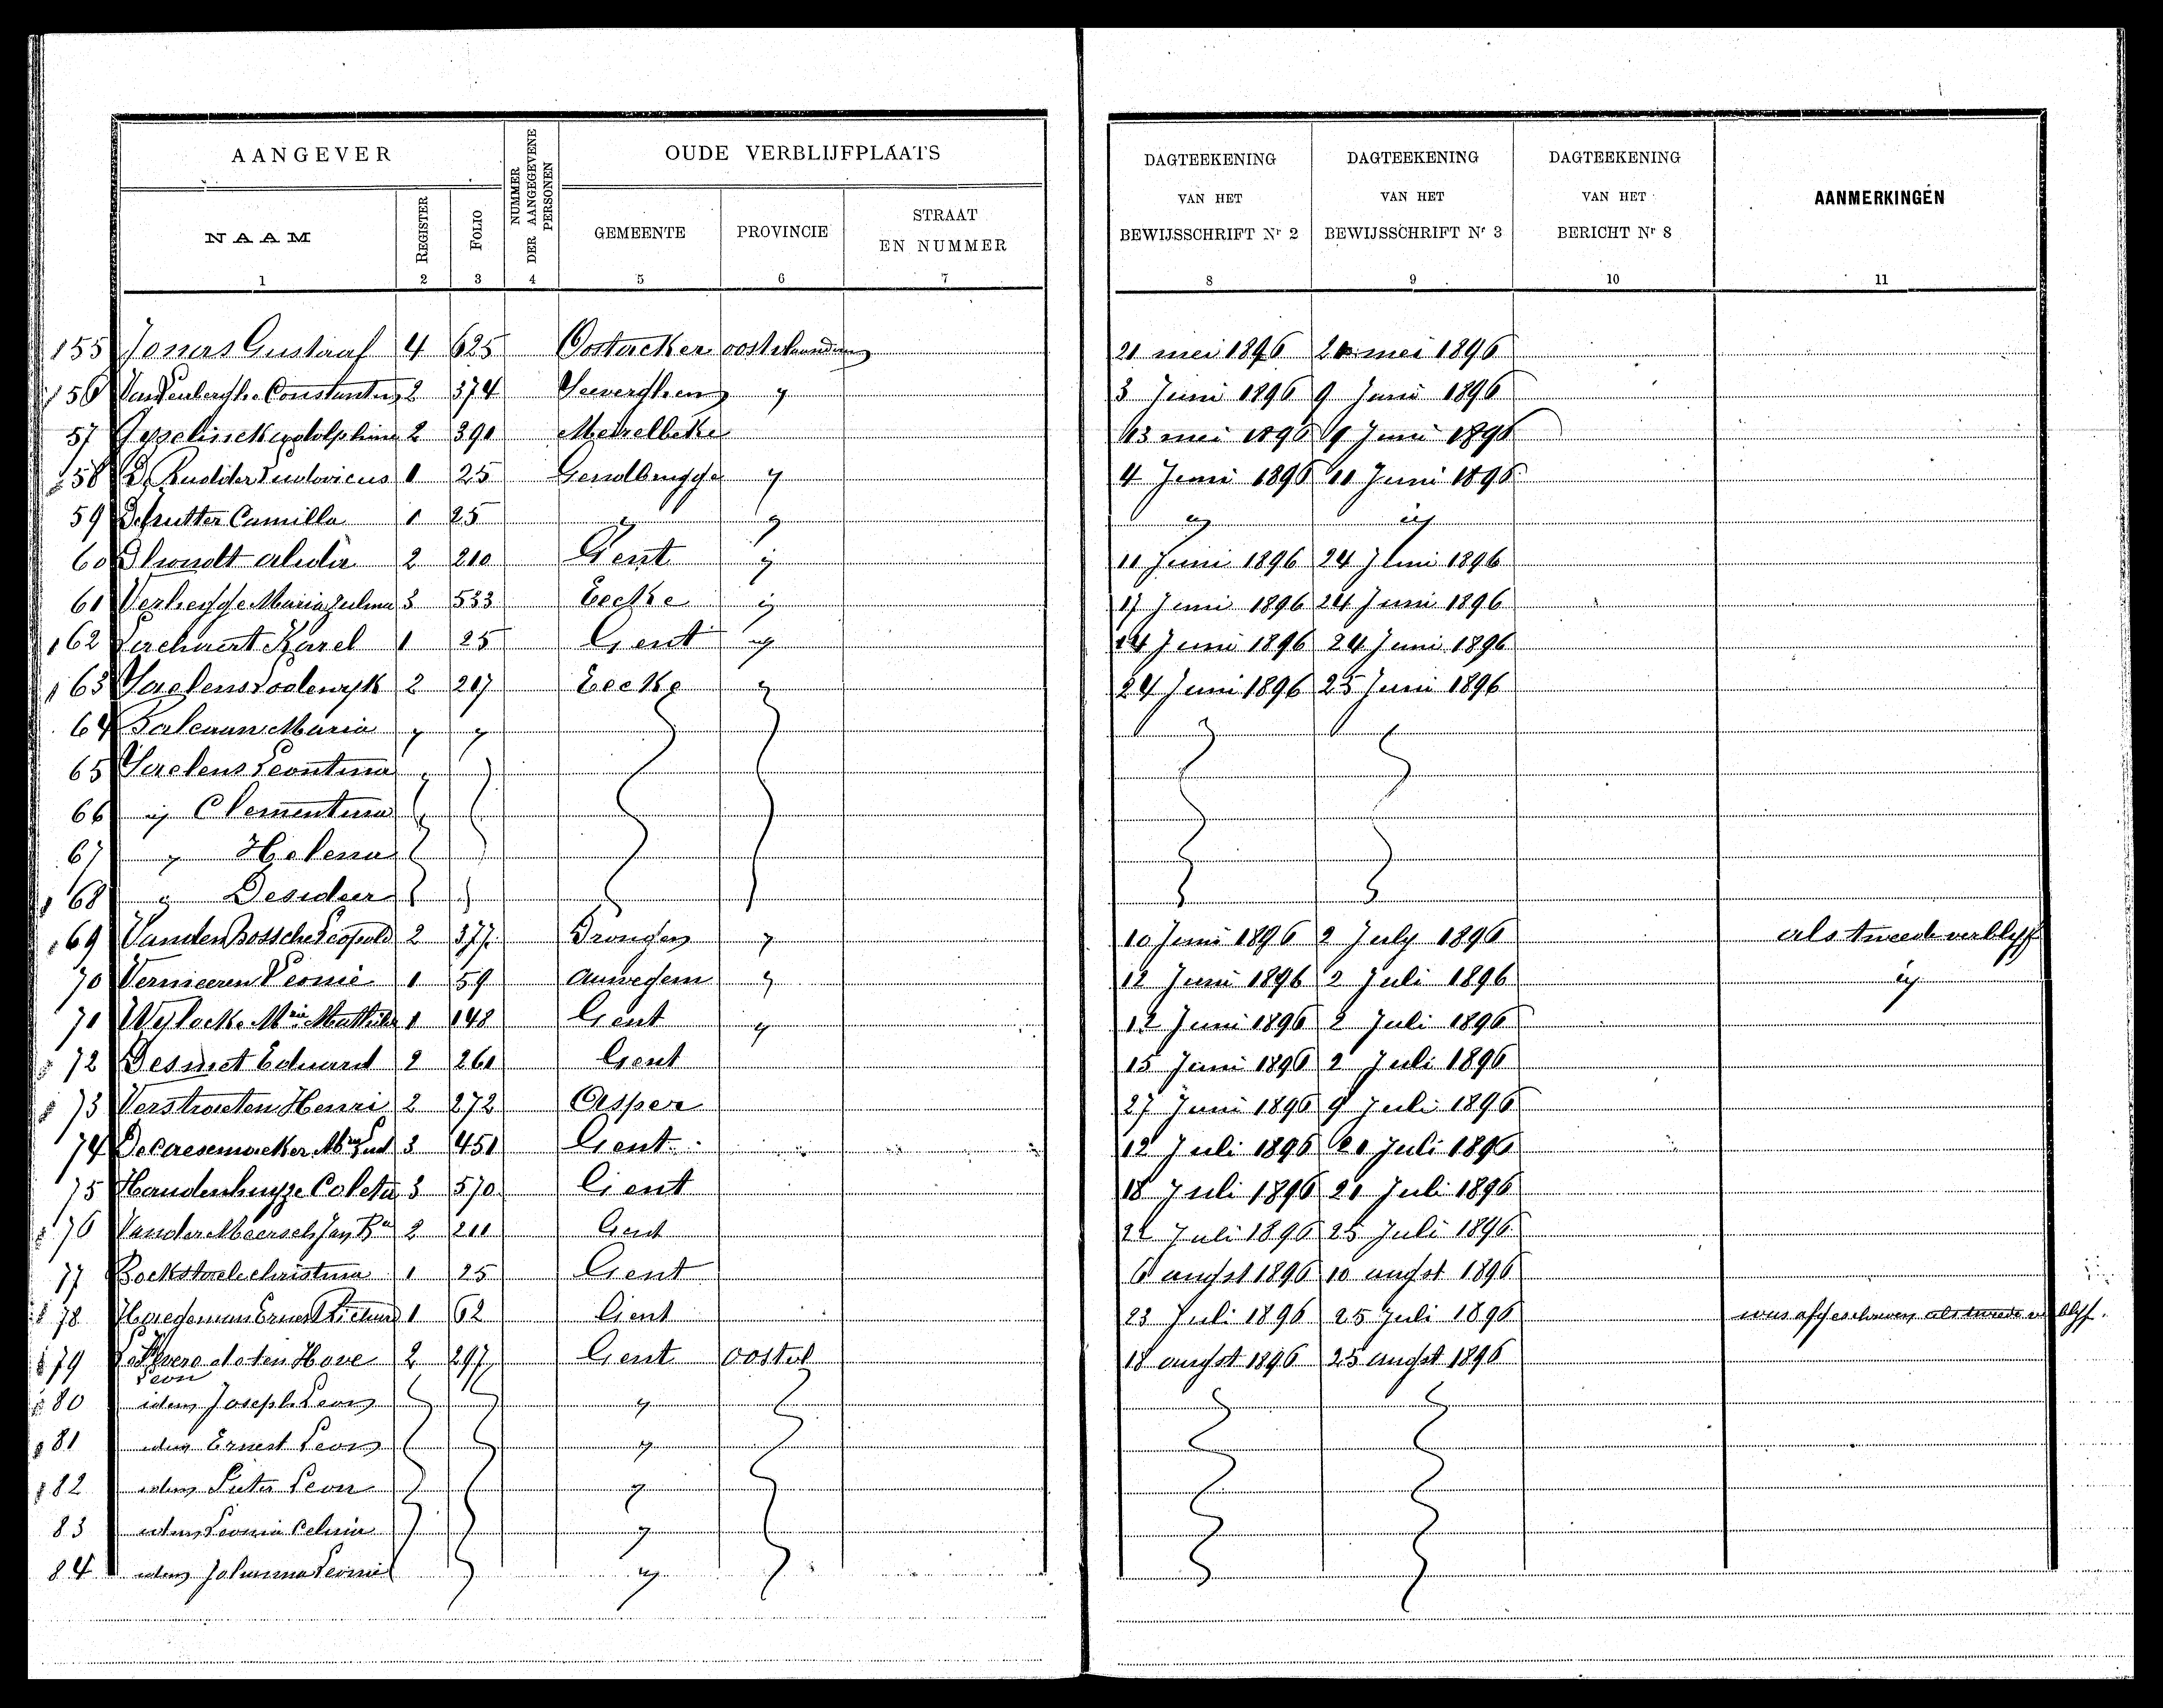 AANGEVER
NUMMER DER AANGEGEVENE PERSONEN
OUDE VERBLIJFPLAATS
DAGTEEKENING VAN HET BEWIJSSCHRIFT Nr 2
DAGTEEKENING VAN HET BEWIJSSCHRIFT Nr 3
DAGTEEKENING VAN HET BERICHT Nr 8
AANMERKINGEN
NAAM REGISTER FOLIO GEMEENTE PROVINCIE STRAAT EN NUMMER
1 2 3 4 5 6 7 8 9 10 11
155 Jonas Gustaaf 4 625 Oostacker oostvlaanderen 21 mei 1896 21 mei 1896
156 2 374 Seeverghem y 3 Juni 1896 9 Juni 1896
57 2 390 Meirelbeke 13 mei 1896 9 Juni 1896
158 De Rudder Ludovicus 1 25 Gendbrugge y 4 Juni 1896 11 Juni 1896
59 Derutter Camilla 1 25 y y ij ij
60 Dhondt alida 2 210 Gent ij 11 Juni 1896 24 Juni 1896
61 Verhegge Maria Zulma 3 533 Eecke ij 17 Juni 1896 24 Juni 1896
162 Karel 1 25 Gent ij 14 Juni 1896 24 Juni 1896
163 Saelens Lodewyk 2 217 Eecke y 24 Juni 1896 25 Juni 1896
64 Maria y y
65 Saelens Leontina y
66 ij Clementina
67 y Helena
168 y Desideer
169 Vanden Bossche Leopold 2 377 Drongen y 10 Juni 1896 2 July 1896 als tweede verblijf
70 Vermeeren Leonie 1 59 auwegem y 12 Juni 1896 2 Juli 1896 ij
71 Wylocke Mie Mathilde 1 148 Gent y 12 Juni 1896 2 Juli 1896
72 Desmet Eduard 2 261 Gent 15 Juni 1896 2 Juli 1896
73 Verstraeten Henri 2 272 Asper 27 Juni 1896 9 Juli 1896
74 Decaesemaeker 3 451 Gent 12 Juli 1896 21 Juli 1896
75 Haudenhuyze Coleta 3 570 Gent 18 Juli 1896 21 Juli 1896
176 Vander Meersch Jan Bta 2 211 Gent 22 Juli 1896 25 Juli 1896
77 Bockstaele christina 1 25 Gent 6 augst 1896 10 augst 1896
178 Haegeman Ernest Richard 1 62 Gent 23 Juli 1896 25 Juli 1896 was afgeschreven als tweede verblijf.
179 de ten Hove 2 297 Gent oostvl 18 augst 1896 25 augst 1896
Leon
180 idem Joseph Leon y
181 idem Ernest Leon y
182 idem Pieter Leon y
83 idem Leonia Celina y
84 idem Johanna Leonie y